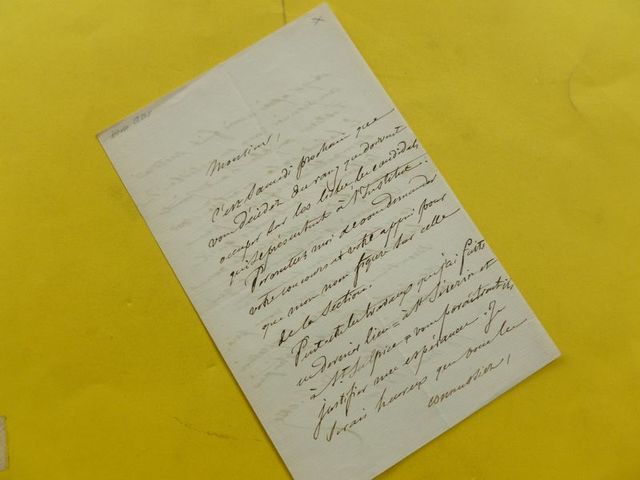 Monsieur,
C'est Samedi prochain que
vous décidez du rang que doivent
occuper sur les listes les candidats
qui se présentent à l'Institut.
Permettez moi de vous demander
votre concours et votre appui pour
que mon nom figure sur celle
de la Section.
Peut-etre les travaux que j'ai faits
en dernier lieu à St Séverin et
à St Sulpice vous paraitront-ils
justifier mes espérances. Je
serais heureux que vous le
connussiez,